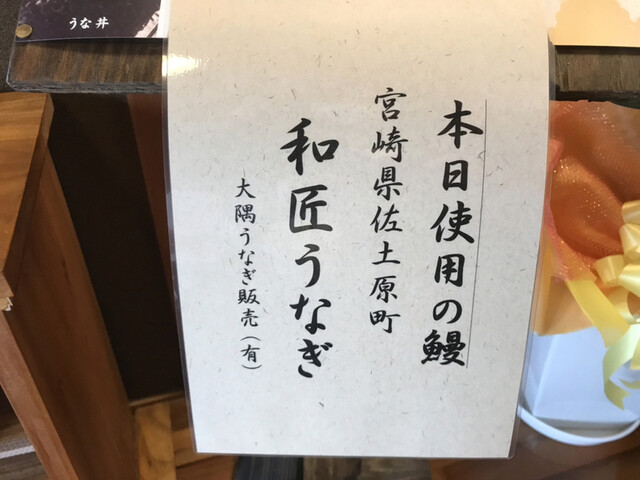 うな丼
本日使用の鰻
宮崎県佐土原町
和匠うなぎ
大隅うなぎ販売(有)